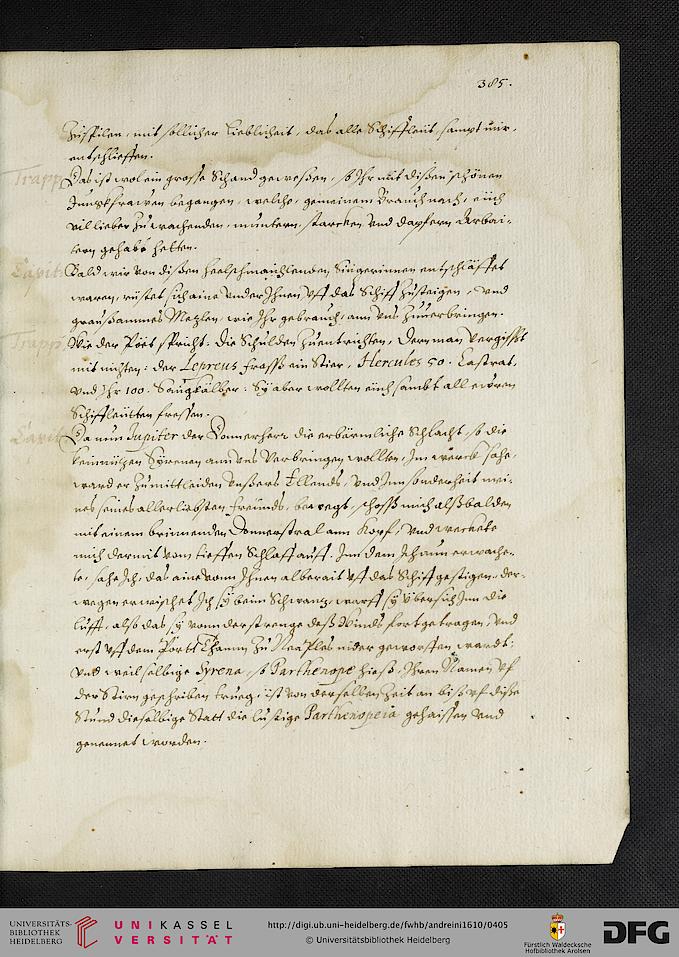 385.
zuspilen, mit sollicher Lieblicheit, das alle Schiffleüt, sampt mir,
entschlieffen.
Trapp
Das ist wol ein grosse Schand gewesen, so Ihr mit disen schönen
Junckfrawen begangen, welche, gemeinem Brauch nach, eüch
vil lieber zu wachenden, muntern, starcken vnd dapfern Arbai-
tern gehabt hetten.
Capit
Bald wir von disen Singerinnen entschläffet
waren, rüstet sich aine vnder Ihnen vff das Schiff zusteigen, vnd
grausammes Metzlen, wie Ihr gebrauch, ann vns zuuerbringen.
Trapp
Wie der Poet spricht: die Schulden zuentrichten, dann man vergisst
mit nichten: der Lepreus frasse ein Stier, Hercules 50. Castrat,
vnd Ihr 100. Saugkälber: Sy aber wollten eüch sambt all ewren
Schiffleütten fressen.
Capit
Da nun Jupiter der Donnerherr die erbärmliche Schlacht, so die
Syrenen ann vns verbringen wollten, Im werck sahe,
ward er zu mittleiden vnsers Ellends, vnd Inn sonderheit mei-
nes seines allerliebsten freünds, bewegt, schoss mich alssbalden
mit einem brinnenden Donnerstral ann Kopf, vnd weckete
mich dermit vom tieffen Schlaff auff. Inn dem Ich nun erwache-
te, sahe Ich, das aine vonn Ihnen alberait vff das Schiff gestigen, der-
wegen erwischet Ich sy beim Schwantz, warff sy übersich Inn die
Lufft, also das sy vonn der strenge dess Winds fortgetragen, vnd
erst vff dem Port zu Neaples nider geworffen wardt:
vnd weil selbige Syrena, so Parthenope hiess, Ihren Namen vf
der Stirn geschriben trueg, ist von derselben Zeit an biss vf dise
Stund dieselbige Statt die lustige Parthenopeia gehaissen vnd
genennet worden.
UNIVERSITÄTS-
BIBLIOTHEK
HEIDELBERG
UNIKASSEL
VERSITÄT
http://digi.ub.uni-heidelberg.de/fwhb/andreini1610/0405
© Universitätsbibliothek Heidelberg
Fürstlich Waldecksche
Hofbibliothek Arolsen
DFG